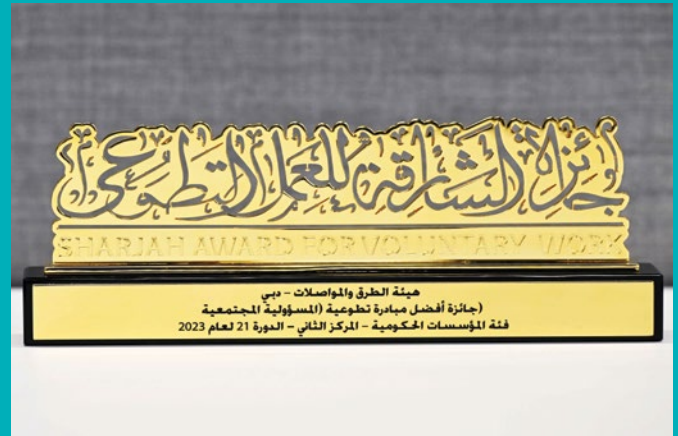 جائزة الشارقة للعمل التطوعي
SHARJAH AWARD FOR VOLUNTARY WORK
هيئة الطرق والمواصلات – دبي
(جائزة أفضل مبادرة تطوعية (المسؤولية المجتمعية
فئة المؤسسات الحكومية – المركز الثاني – الدورة 21 لعام 2023